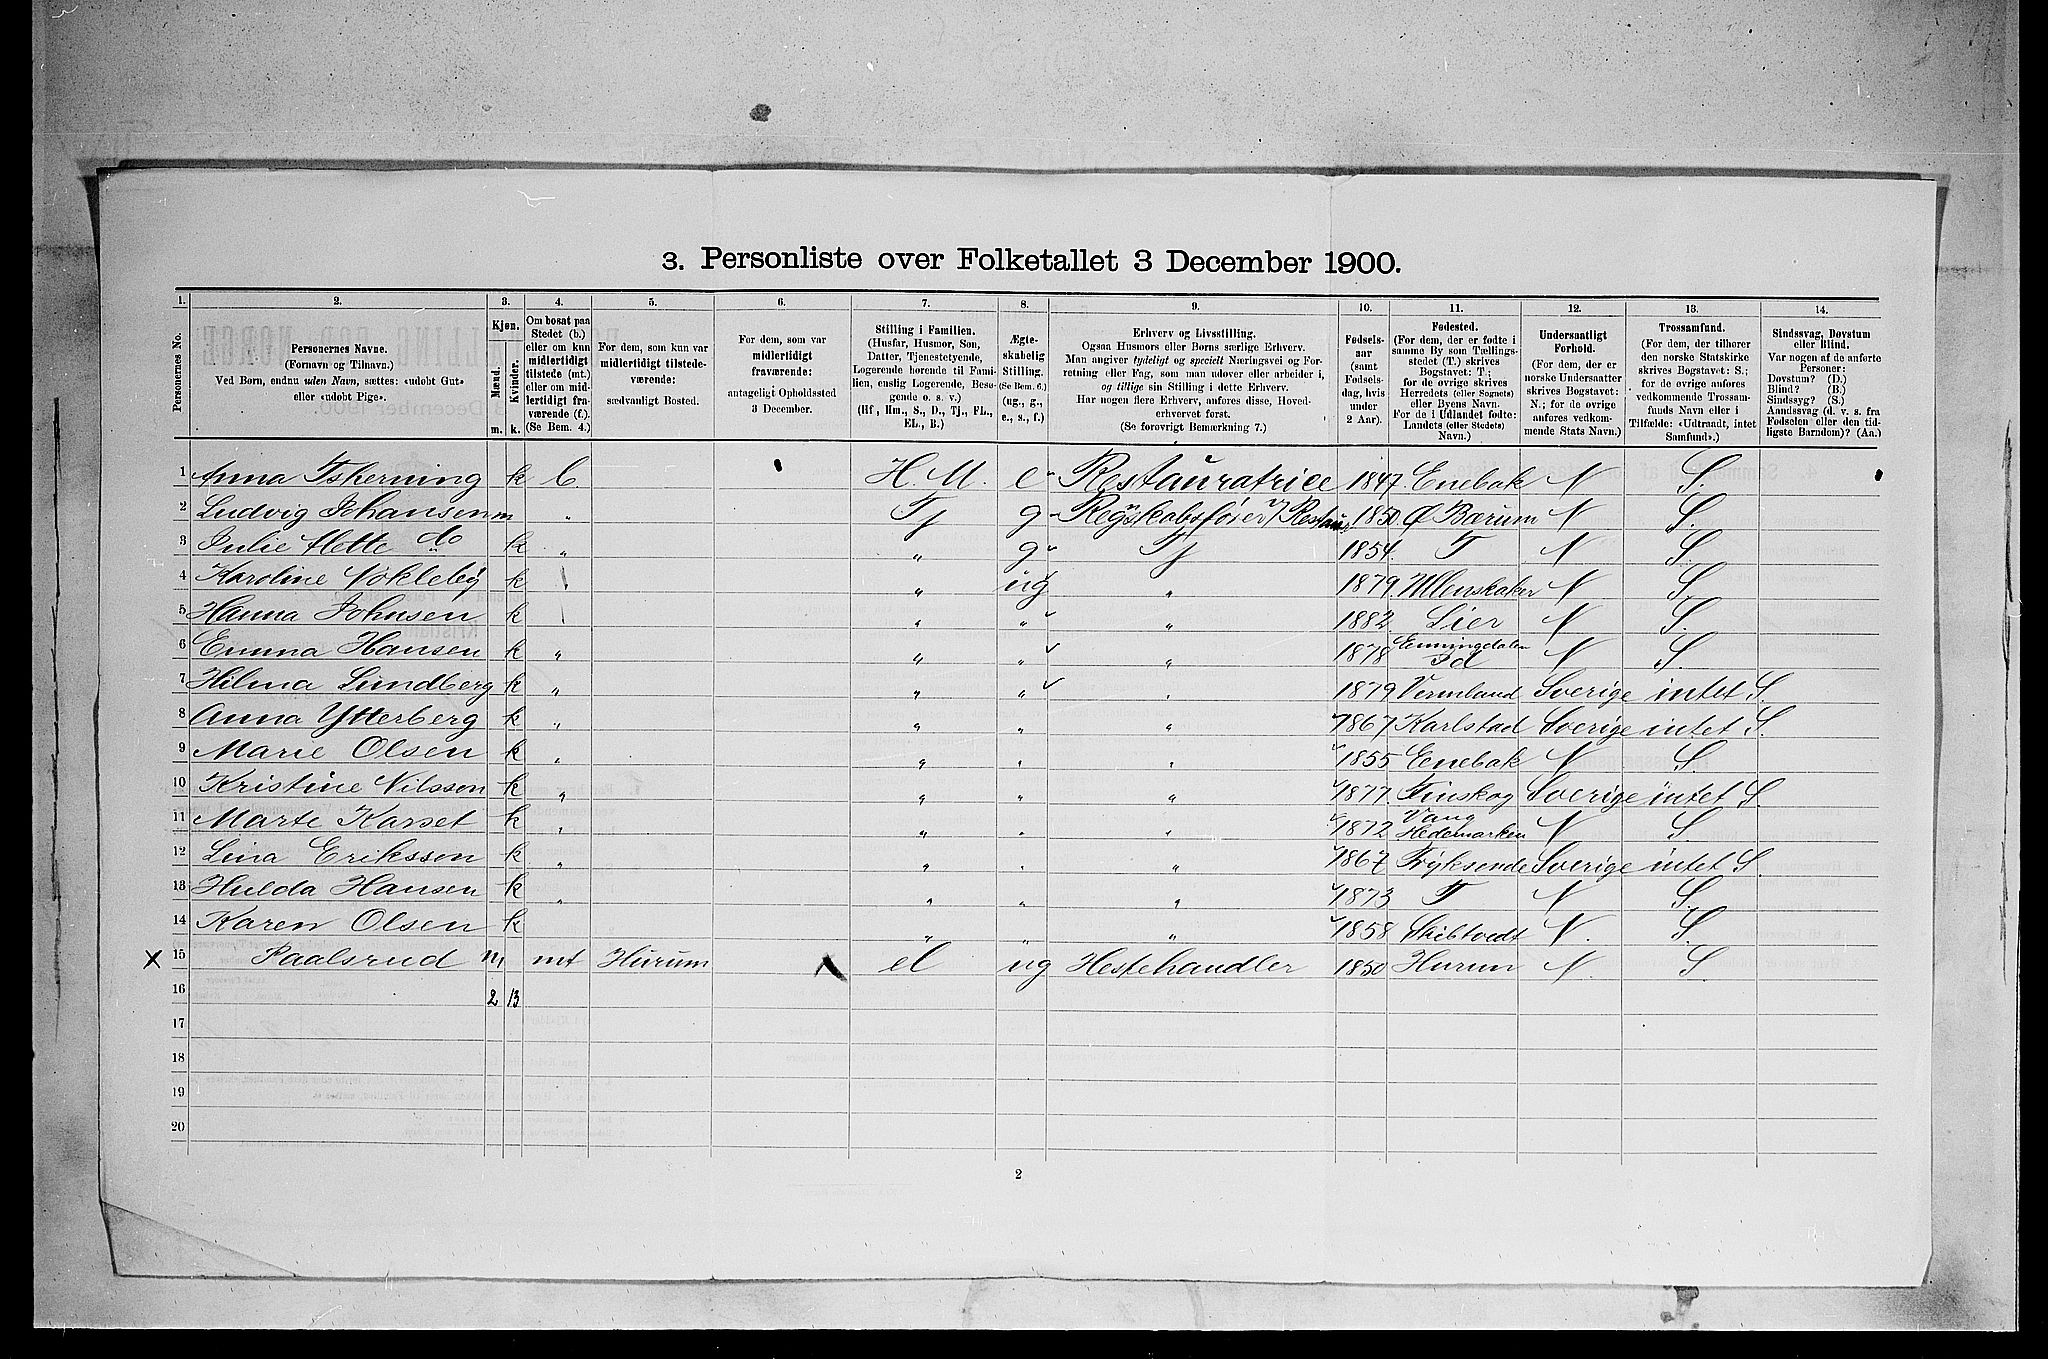 3. Personliste over Folketallet 3 December 1900.
1. 2. 3. 4. 5. 6. 7. 8. 9. 10. 11. 12. 13. 14.
Personernes No.
Personernes Navne.
(Fornavn og Tilnavn.)
Ved Børn, endnu uden Navn, sættes: «udøbt Gut»
eller «udøbt Pige».
Kjøn.
Mænd.
Kvinder.
m. k.
Om bosat paa
Stedet (b.)
eller om kun
midlertidigt
tilstede (mt.)
eller om mid-
lertidigt fra-
værende (f.).
(Se Bem. 4.)
For dem, som kun var
midlertidigt tilstede-
værende:
sædvanligt Bosted.
For dem, som var
midlertidigt
fraværende:
antageligt Opholdssted
3 December.
Stilling i Familien.
(Husfar, Husmor, Søn,
Datter, Tjenestetyende,
Logerende hørende til Fami-
lien, enslig Logerende, Besø-
gende o. s. v.)
(Hf., Hm., S., D., Tj., FL.,
EL., B.)
Ægte-
skabelig
Stilling.
(Se Bem. 6.)
(ug., g.,
e., s., f.)
Erhverv og Livsstilling.
Ogsaa Husmors eller Børns særlige Erhverv.
Man angiver tydeligt og specielt Næringsvei og For-
retning eller Fag, som man udøver eller arbeider i,
og tillige sin Stilling i dette Erhverv.
Har nogen flere Erhverv, anføres disse, Hoved-
erhvervet først.
(Se forøvrigt Bemærkning 7.)
Fødsels-
aar
(samt
Fødsels-
dag, hvis
under
2 Aar).
Fødested.
(For dem, der er fødte i
samme By som Tællings-
stedet (T.) skrives
Bogstavet: T.;
for de øvrige skrives
Herredets (eller Sognets)
eller Byens Navn.
For de i Udlandet fødte:
Landets (eller Stedets)
Navn.)
Undersaatligt
Forhold.
(For dem, der er
norske Undersaatter
skrives Bogstavet:
N.; for de øvrige
anføres vedkom-
mende Stats Navn.)
Trossamfund.
(For dem, der tilhører
den norske Statskirke
skrives Bogstavet: S.;
for de øvrige anføres
vedkommende Trossam-
funds Navn eller i
Tilfælde: «Udtraadt, intet
Samfund».)
Sindssvag, Døvstum
eller Blind.
Var nogen af de anførte
Personer:
Døvstum? (D.)
Blind? (B.)
Sindssyg? (S.)
Aandssvag (d. v. s. fra
Fødselen eller den tid-
ligste Barndom)? (Aa.)
1 Anna Tskerning k b H. M. e Restauratrice 1847. Enebak N S.
2 Ludvig Johansen m " Tj g 1850. Ø Bærum N S.
3 Julie Mette do k " " g Tj 1854. T N S.
4 Karoline Nökleby k " ug " 1879. Ullensaker N S.
5 Hanna Johnsen k " " " 1882. Lier N S.
6 Emma Hansen k " " " " 1878 Enningdalen Id N S
7 Hilma Lundberg k " " " " 1879 Vermland Sverige intet S.
8 Anna Ytterberg k " " " " 1867 Karlstad Sverige intet S.
9 Marie Olsen k " " " " 1855 Enebak N S.
10 Kristine Nilsson k " " " " 1877. Finskog Sverige intet S.
11 Marte Kasset k " " " " 1872 Vang Hedemarken N S
12 Lina Eriksson k " " " " 1867 Fryksende Sverige intet S.
13 Hulda Hansen k " " " " 1873 T N S.
14 Karen Olsen k " " " 1858 Skibtvedt N. S.
x 15 Paalsrud m mt Hurum el ug Hestehandler 1850 Hurum N. S
16 2 13
17
18
19
20
2